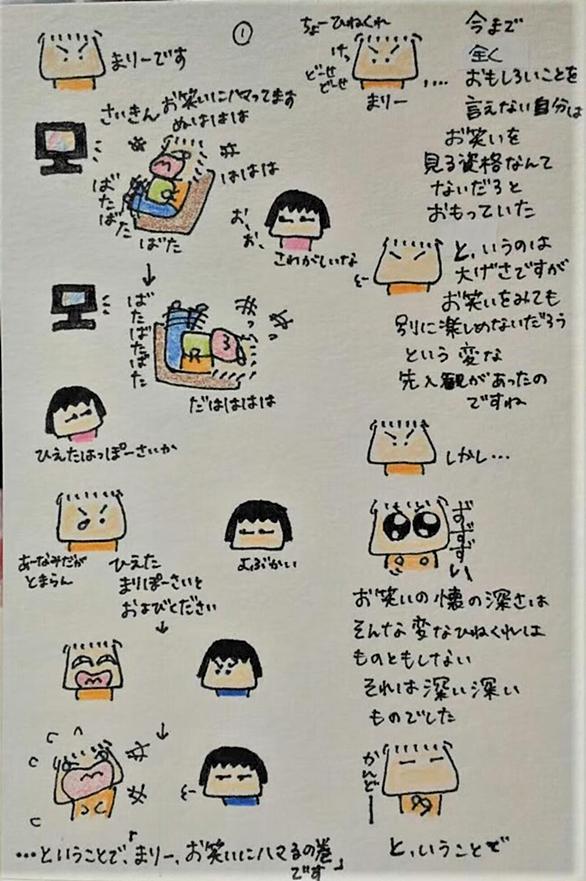 ①
まりーです
さいきんお笑いにハマってます
ぬはははは
はははは
ばたばた
ばた
お、お、
こわがしいな
ばたばたばたばた
だはははは
ひえたはっぽーさいか
あーなみだが
とまらん
ひえた
まりぽーさいと
およびください
むぶかい
…ということで、「まりー、お笑いにハマるの巻」
です
ちょーひねくれ
けっ
どーせ
どーせ
まりー
....
今まで
全く
おもしろいことを
言えない自分は
お笑いを
見る資格なんて
ないだろと
おもっていた
と、いうのは
大げさですが
お笑いをみても
別に楽しめないだろう
という変な
先入観があったの
ですね
しかし…
ずずずい
お笑いの懐の深さは
そんな変なひねくれは
ものともしない
それは深い深い
ものでした
かんどー
と、いうことで